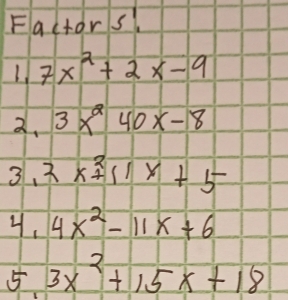 Factors!
1. 7x² + 2x - 9
2. 3x² 40x - 8
3. 2x² + 11x + 5
4. 4x² - 11x + 6
5. 3x² + 15x + 18